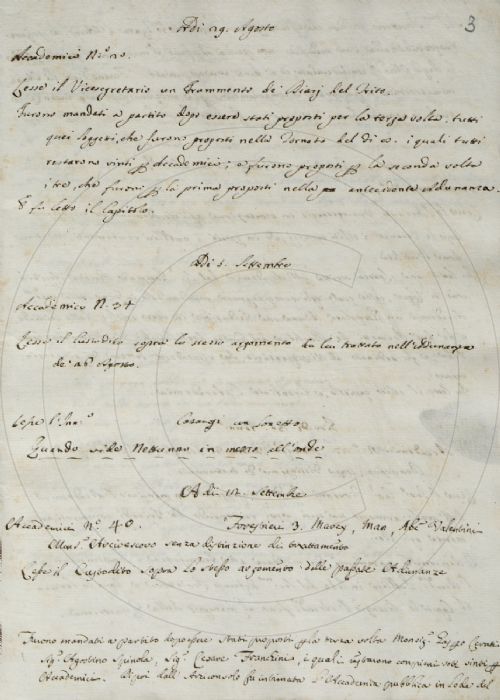 3
Adi 29. Agosto
Accademici N.º 20.
Lesse il Vicesegretario un Frammento de' Viaj del
Furono mandati a partito dopo essere stati proposti per la terza volta tutti
quei soggetti, che furono proposti nella Tornata del di i quali tutti
restarono vinti p Accademici; e furono proposti p la seconda volta
i tre, che furono p la prima proposti nella antecedente Adunanza.
fu letto il Capitolo.
Adi 5. Settembre
Accademici N. 34
Lesse il Custodito sopra lo stesso argomento da lui trattato nell'Adunanza
de' 26 Agosto.
Lesse l' un Sonetto
Quando vide Nettunno in mezzo all'onde
Adi 12. Settembre
Accademici Nº 40. Forestieri 3. Ab.e Valentini
Arcivescovo senza distinzione di trattamento
Lesse il Custodito sopra lo stesso argomento delle passate Adunanze
Furono mandati a partito dopo esser stati proposti p la terza volta Monsig.
Sig. Agostino Spinola, Sig. Cesare Franchini, i quali restarono vinti p
Accademici. dall' fu intimata l'Accademia pubblica in lode del